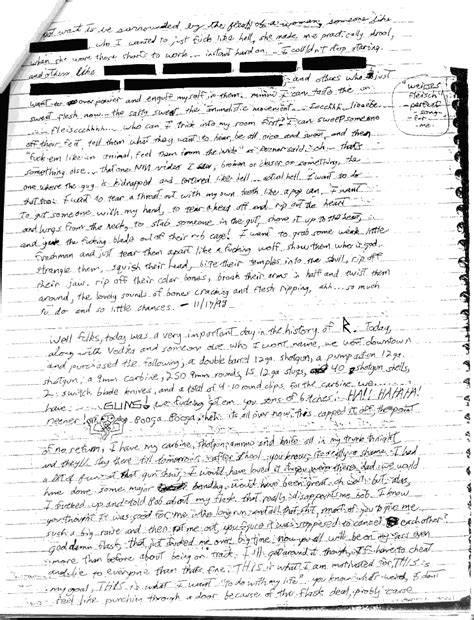 wait is be surrounded by the flesh of a woman, someone like
who I wanted to just fuck like hell, she made me practically drool,
when she wore those shorts to work... instant hard on. I couldn't stop staring.
and others like
and others who I just
want to overpower and engulf myself in them. mmmm I can taste the
sweet flesh now... the salty sweet, the animalistic movement...
fleisccchhh... who can I trick into my room first? I can sweep someone
off their feet, tell them what they want to hear, be all nice and sweet, and then
"fuck em like an animal, feel them from the inside" as Reznor said. oh... that's
something else... that one NIN video I saw, broken or closer or something, the
one where the guy is kidnapped and tortured like hell... actual hell. I want to do
that too. I want to tear a throat out with my own teeth like a pop can. I want
to gut someone with my hand, to tear a head off and rip out the heart
and lungs from the neck, to stab someone in the gut, shove it up to the heart,
and yank the fucking blade out of their rib cage! I want to grab some weak little
freshman and just tear them apart like a fucking wolf. show them who is god.
strangle them, squish their head, bite their temples into the skull, rip off
their jaw. rip off their colar bones, break their arms in half and twist them
around, the lovely sounds of bones cracking and flesh ripping, ahh... so much
to do and so little chances. - 11/17/98
weisses
fleisch!
perfect
song
for
me
Well folks, today was a very important day in the history of R. Today,
along with Vodka and someone else who I wont name, we went downtown
and purchased the following; a double barrel 12 ga. shotgun, a pump action 12 ga.
shotgun, a 9mm carbine, 250 9mm rounds, 15 12 ga slugs, 40 shotgun shells,
2 switch blade knives, and a total of 4 - 10 round clips for the carbine. we
have GUNS! we fucking got em you sons of bitches! HA!! HAHAHA!
neener! Booga Booga. heh. its all over now. this capped it off, the point
of no return. I have my carbine, shotgun, ammo and knife all in my trunk tonight
and they'll stay there till tomorrow. after school you know, its really a shame. I had
a lot of fun at that gun show, I would have loved it if you were there dad. we would
have done some major bonding. would have been great. oh well. but, alas,
I fucked up and told Bob about my flask. that really disappointed me Bob. I know
you thought it was good for me in the long run and all that shit, smart of you to give me
such a big raise and then rat me out, you figure it was supposed to cancel each other?
god damn flask, that just fucked me over big time. now you all will be on my ass even
more than before about being on track. I'll get around it though, if I have to cheat
and lie to everyone then that's fine. THIS is what I am motivated for, THIS is
my goal. THIS is what I want "to do with my life". you know what's weird, I dont
feel like punching through a door because of the flask deal, probly cause